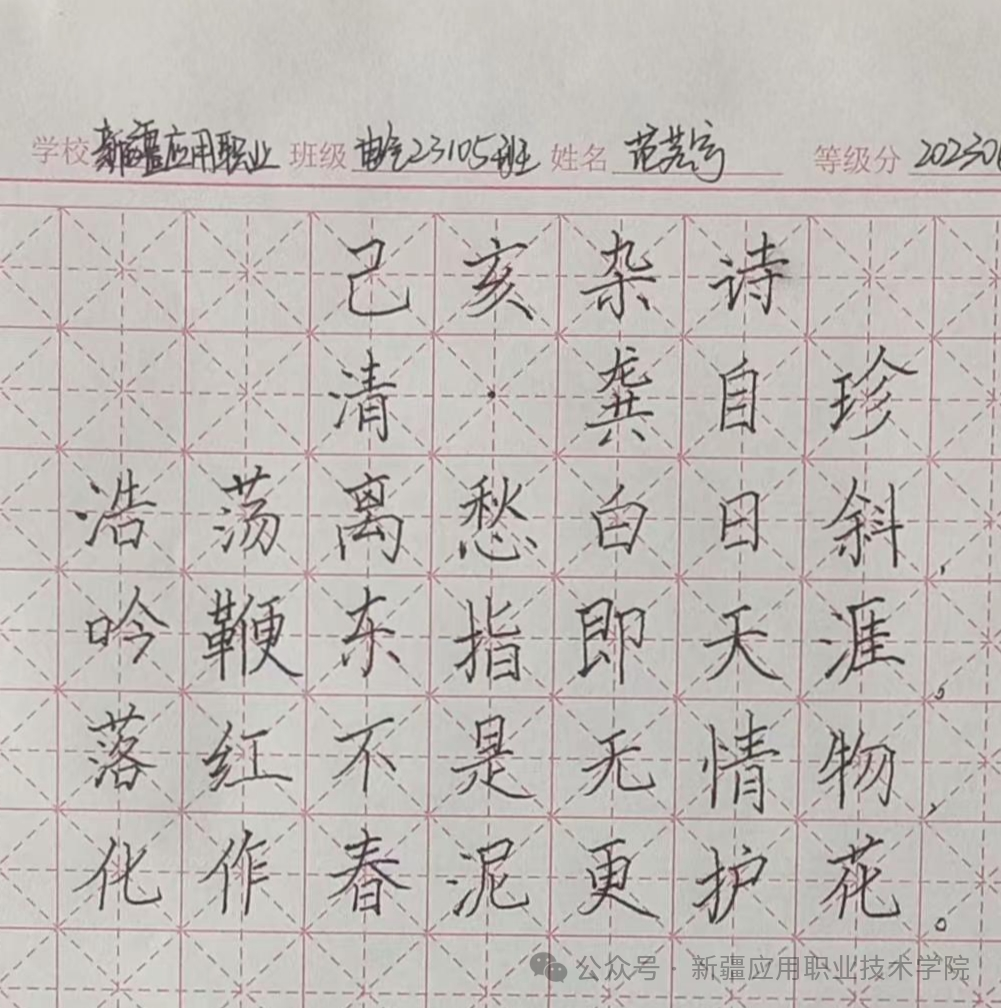 学校 新疆应用职业 班级 电气23105班 姓名 等级分 20230
己亥杂诗
清·龚自珍
浩荡离愁白日斜,
吟鞭东指即天涯。
落红不是无情物,
化作春泥更护花。
公众号·新疆应用职业技术学院